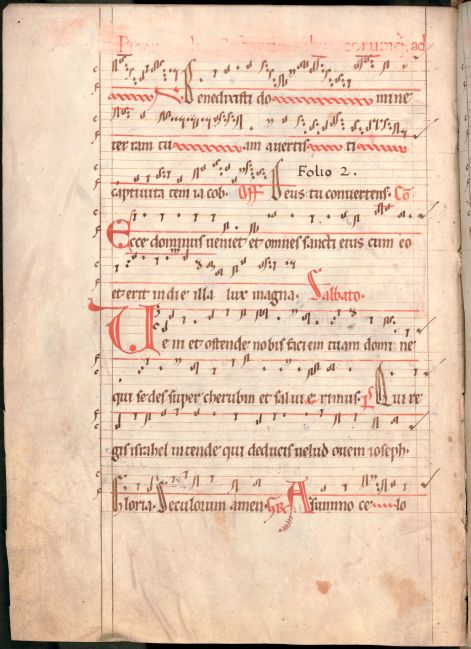 Benedixisti do mine
ter ram tu am auertis ti
captiuita tem ia cob. Off Deus tu conuertens. Co
Folio 2.
Ecce dominus ueniet et omnes sancti eius cum eo
et erit in die illa lux magna. Sabbato.
Ve ni et ostende nobis faciem tuam domi ne
qui sedes super cherubin et salui e rimus. Ps Qui re
gis israhel intende qui deducis uelud ouem ioseph.
Gloria. Seculorum amen. A summo ce lo